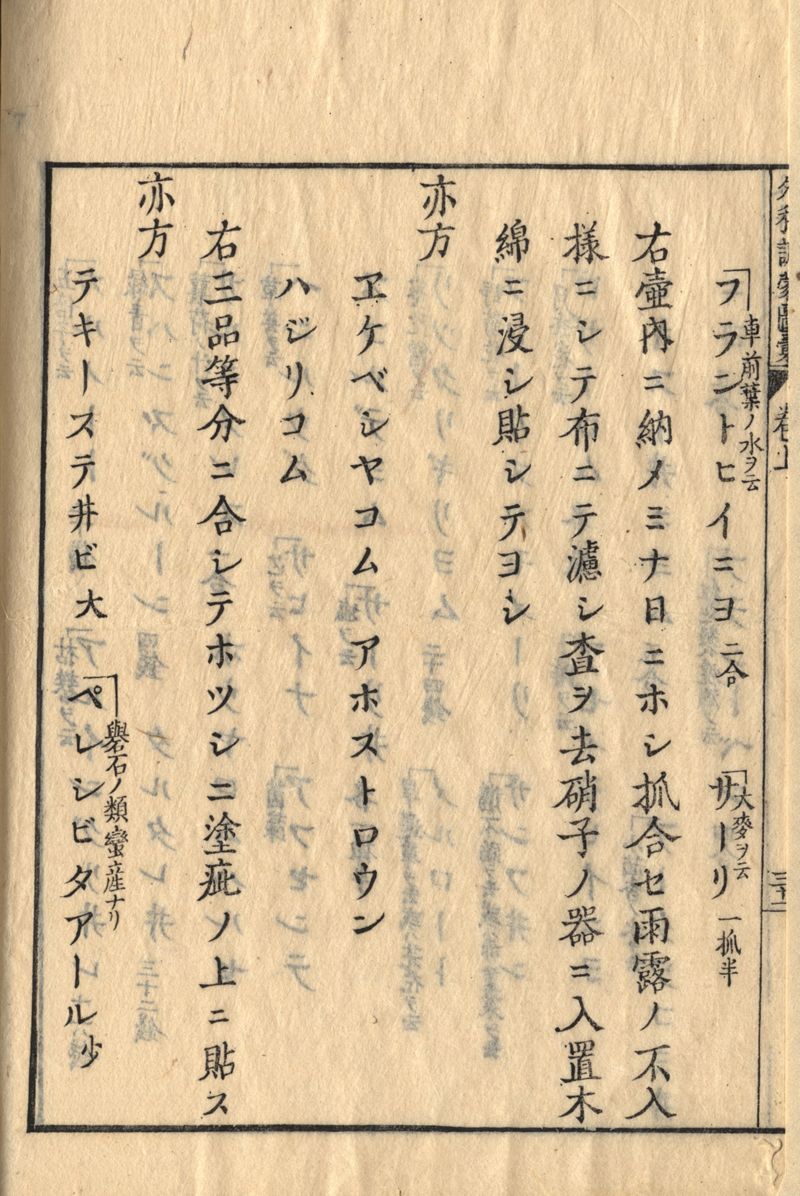 外科訓蒙圖彙 巻上
三十二
フラントヒイニヨ 二合 サーリ 一抓半
車前葉ノ水ヲ云
大麥ヲ云
右壷內ニ納メミナ日ニホシ抓合セ雨露ノ不入
様ニシテ布ニテ濾シ査ヲ去硝子ノ器ニ入置木
綿ニ浸シ貼シテヨシ
亦方
ヱケベシヤコム アホストロウン
ハジリコム
右三品等分ニ合シテホツシニ塗疵ノ上ニ貼ス
亦方
テキーステ井ビ 大 ペレシビタアール 少
礜石ノ類蠻産ナリ